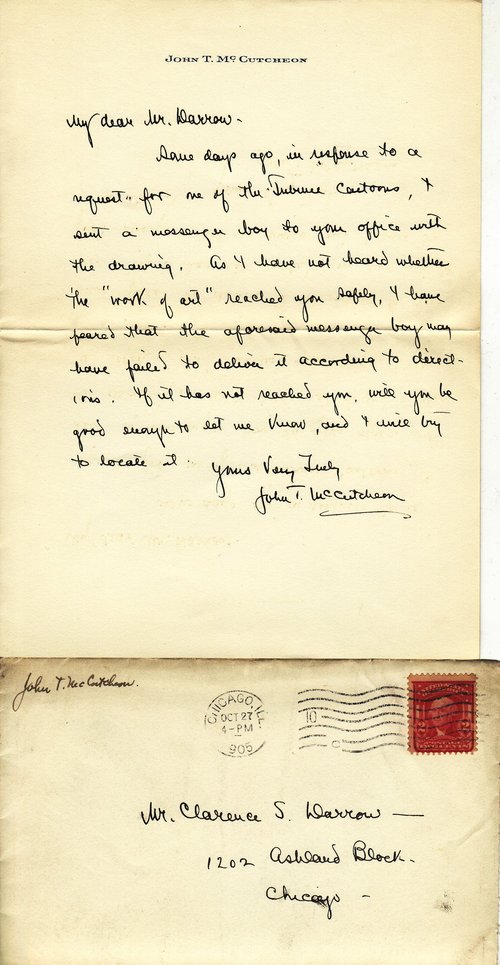 JOHN T. McCUTCHEON
My dear Mr. Darrow-
Some days ago, in response to a
request for one of the Tribune Cartoons, I
sent a messenger boy to your office with
the drawing. As I have not heard whether
the "work of art" reached you safely, I have
feared that the aforesaid messenger boy may
have failed to deliver it according to direct-
ions. If it has not reached you, will you be
good enough to let me know, and I will try
to locate it.
Yours Very Truly
John T. McCutcheon
John T. McCutcheon.
CHICAGO, ILL.
OCT 27
4-PM
1905
10
Mr. Clarence S. Darrow —
1202 Ashland Block.
Chicago -